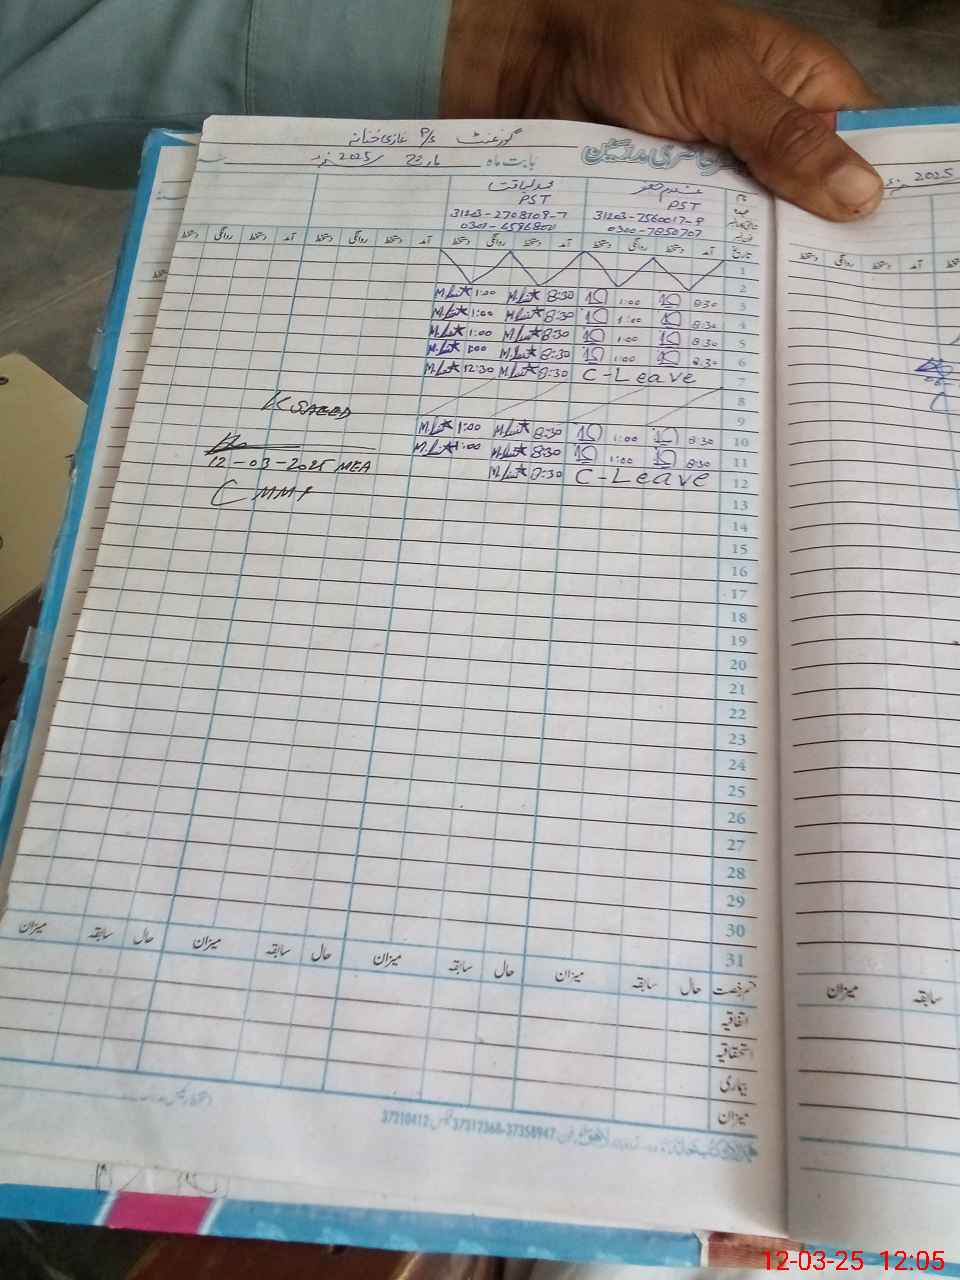 گورنمنٹ P/S غازی خنانہ
بابت ماہ مارچ 2025
نام غلام جعفر محمد لیاقت
PST PST
31203-2708108-7
0300-7850707
تاریخ آمد دستخط روانگی دستخط آمد دستخط روانگی دستخط آمد دستخط روانگی دستخط آمد دستخط روانگی دستخط
1
2
3 8:30 1:00 8:30 1:00
4 8:30 1:00 8:30 1:00
5 8:30 1:00 8:30 1:00
6 8:30 1:00 8:30 1:00
7 C-Leave 8:30 12:30
8
9
10 8:30 1:00 8:30 1:00
11 8:30 1:00 8:30 1:00
12 C-Leave 8:30
K SAEED
12-03-2025 MEA
13
14
15
16
17
18
19
20
21
22
23
24
25
26
27
28
29
30
31
قسم رخصت حال سابقہ میزان حال سابقہ میزان حال سابقہ میزان حال سابقہ میزان
اتفاقیہ
استحقاقیہ
بیماری
میزان
37310412 37312368-37358947
2025
میزان سابقہ
12-03-25 12:05